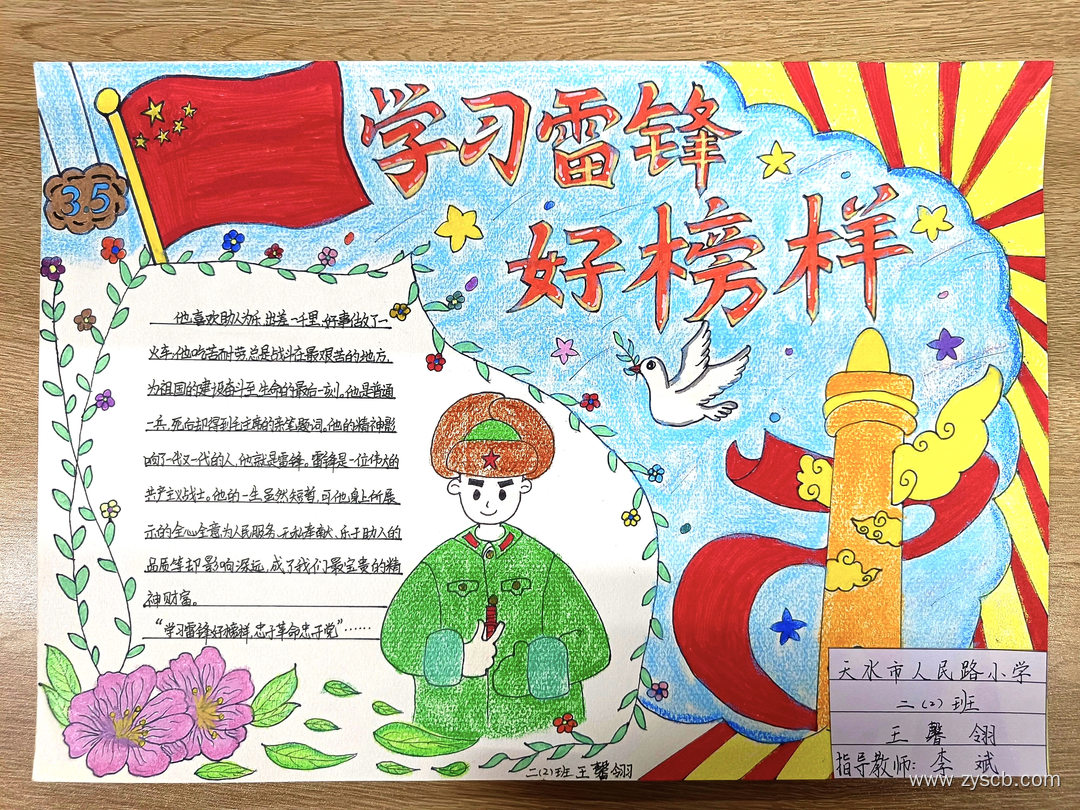 学习雷锋
好榜样
3.5
他喜欢助人为乐,出差一千里,好事做了一
火车,他吃苦耐劳,总是战斗在最艰苦的地方,
为祖国的建设奋斗至生命的最后一刻。他是普通
一兵,死后却得到毛主席的亲笔题词。他的精神影
响了一代又一代的人,他就是雷锋。雷锋是一位伟大的
共产主义战士。他的一生虽然短暂,可他身上所展
示的全心全意为人民服务、无私奉献、乐于助人的
品质却影响深远,成了我们最宝贵的精
神财富。
“学习雷锋好榜样,忠于革命忠于党”……
二(2)班王馨翎
天水市人民路小学
二(2)班
王馨翎
指导教师:李斌
www.zyscb.com